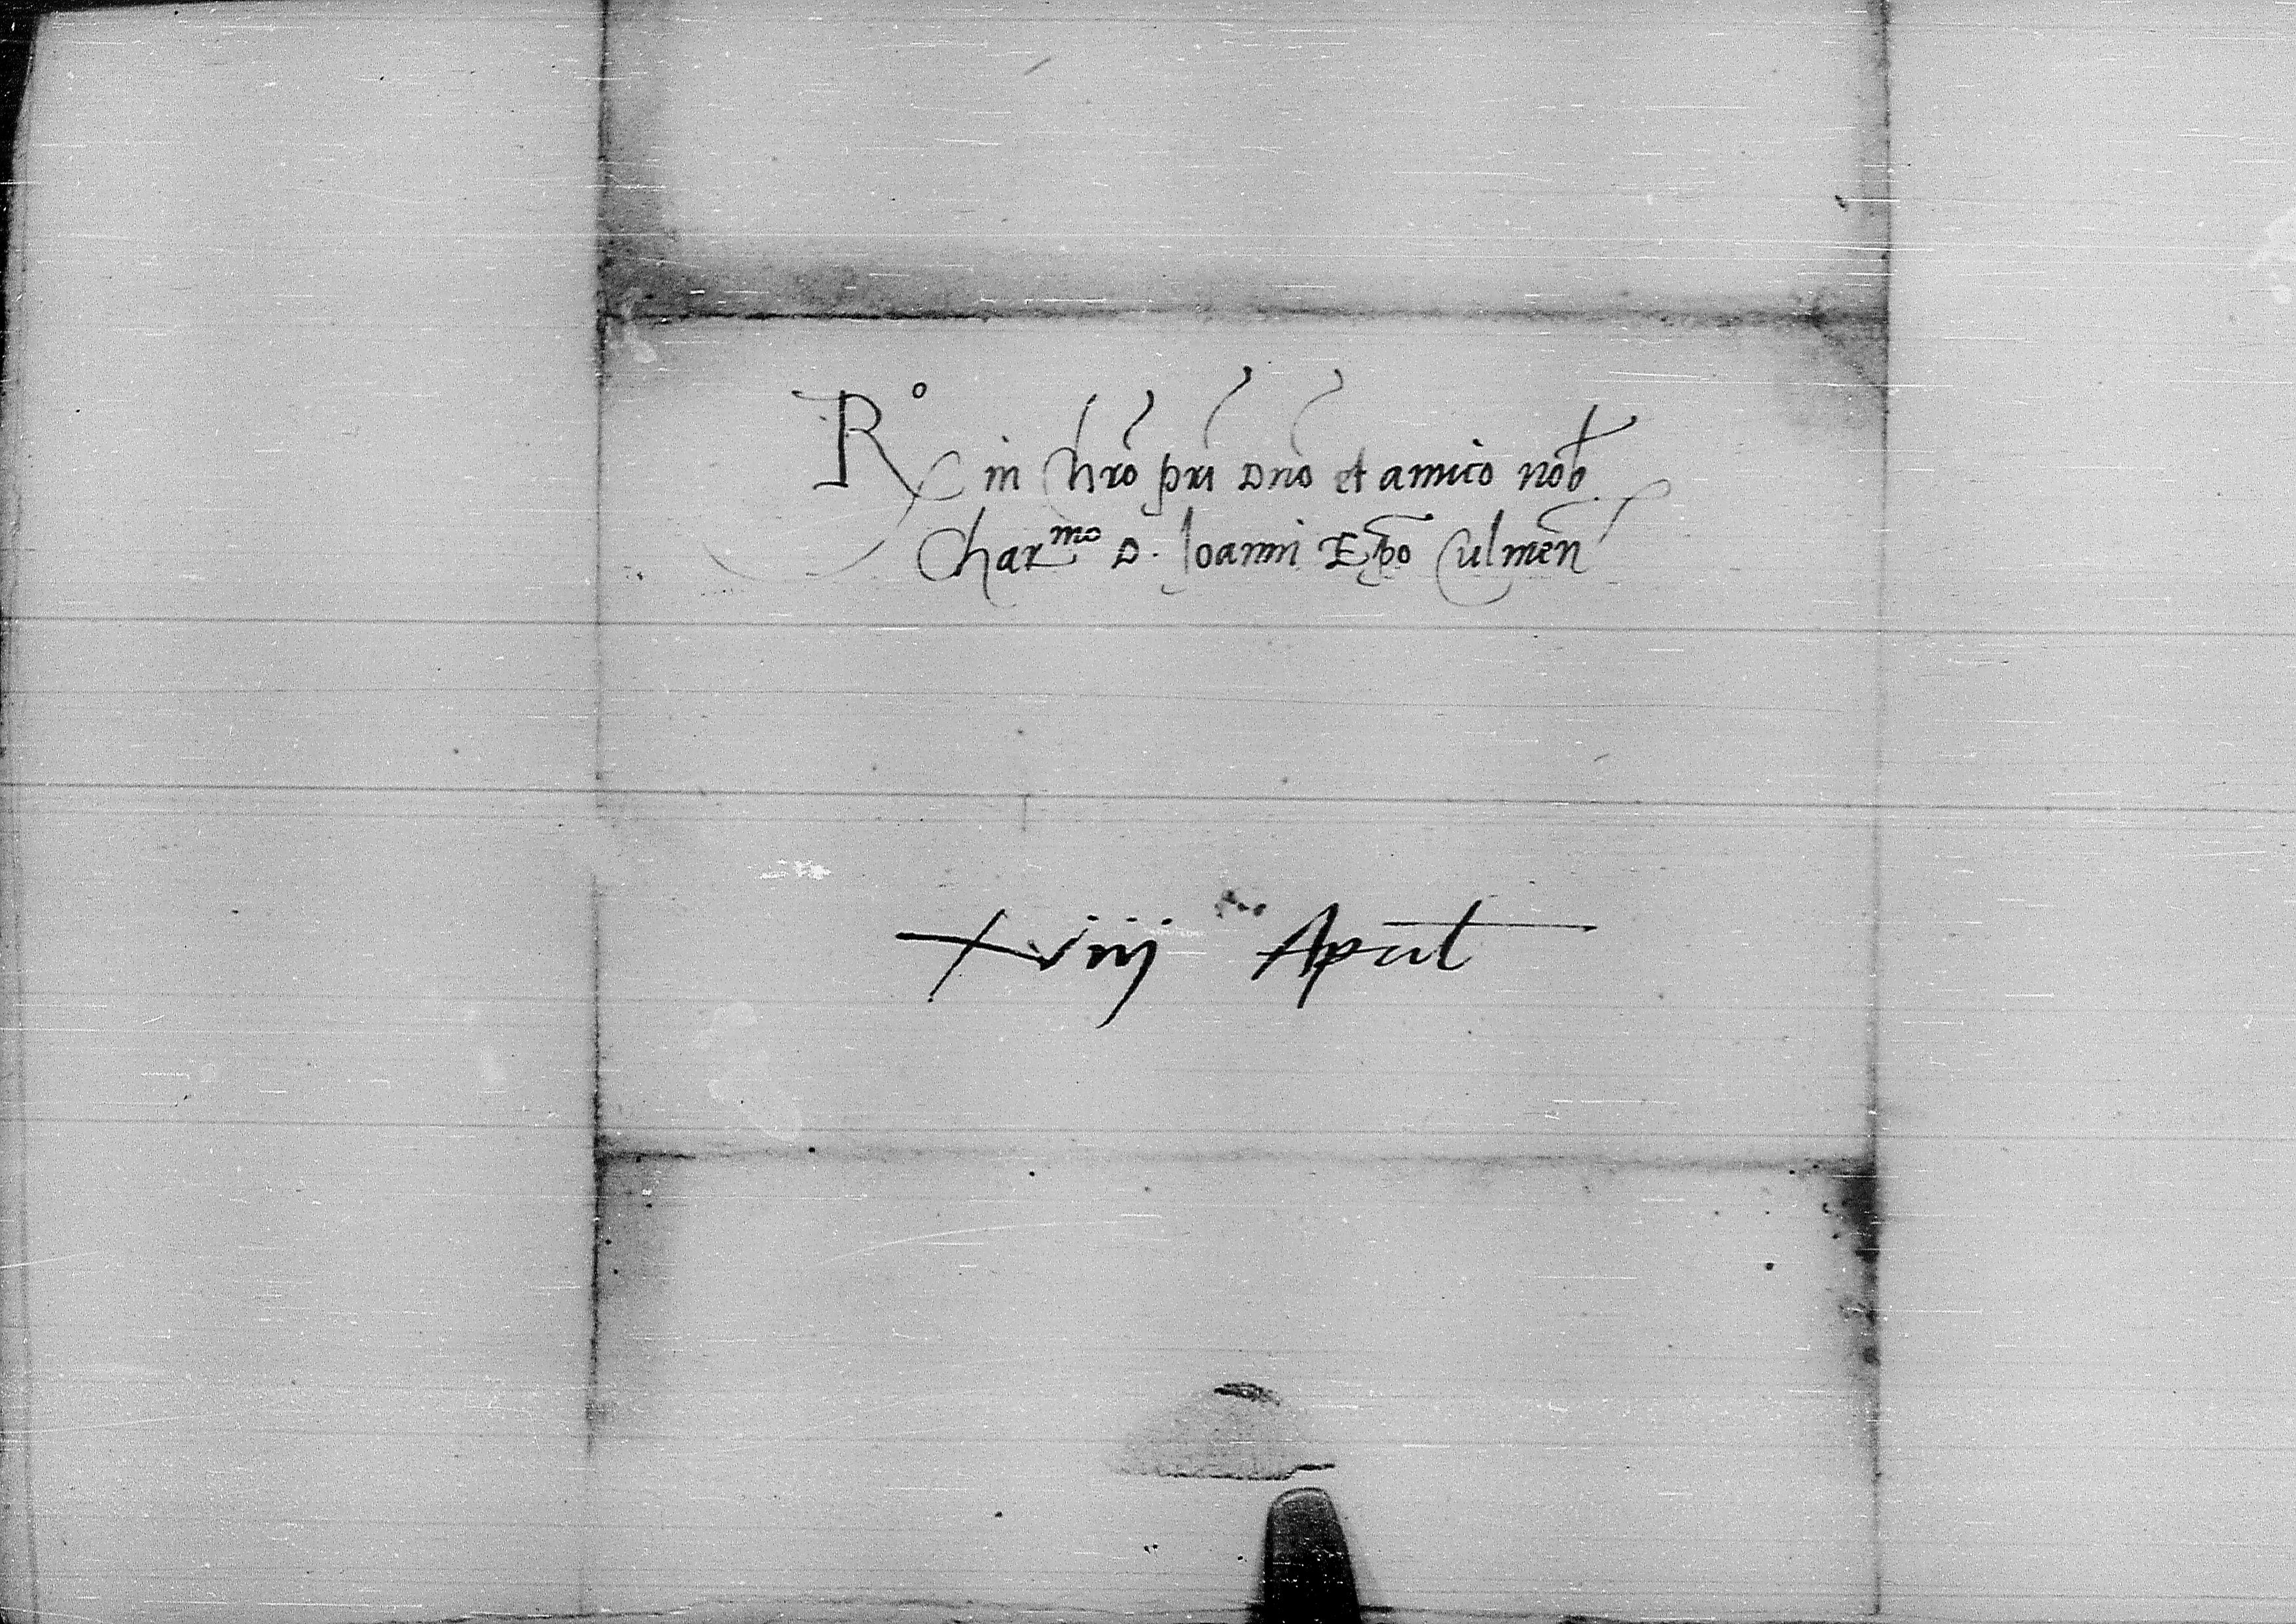 R° in Chro pri Dno et amico nob.
Char^mo D. Ioanni Epo Culmen
xviij April